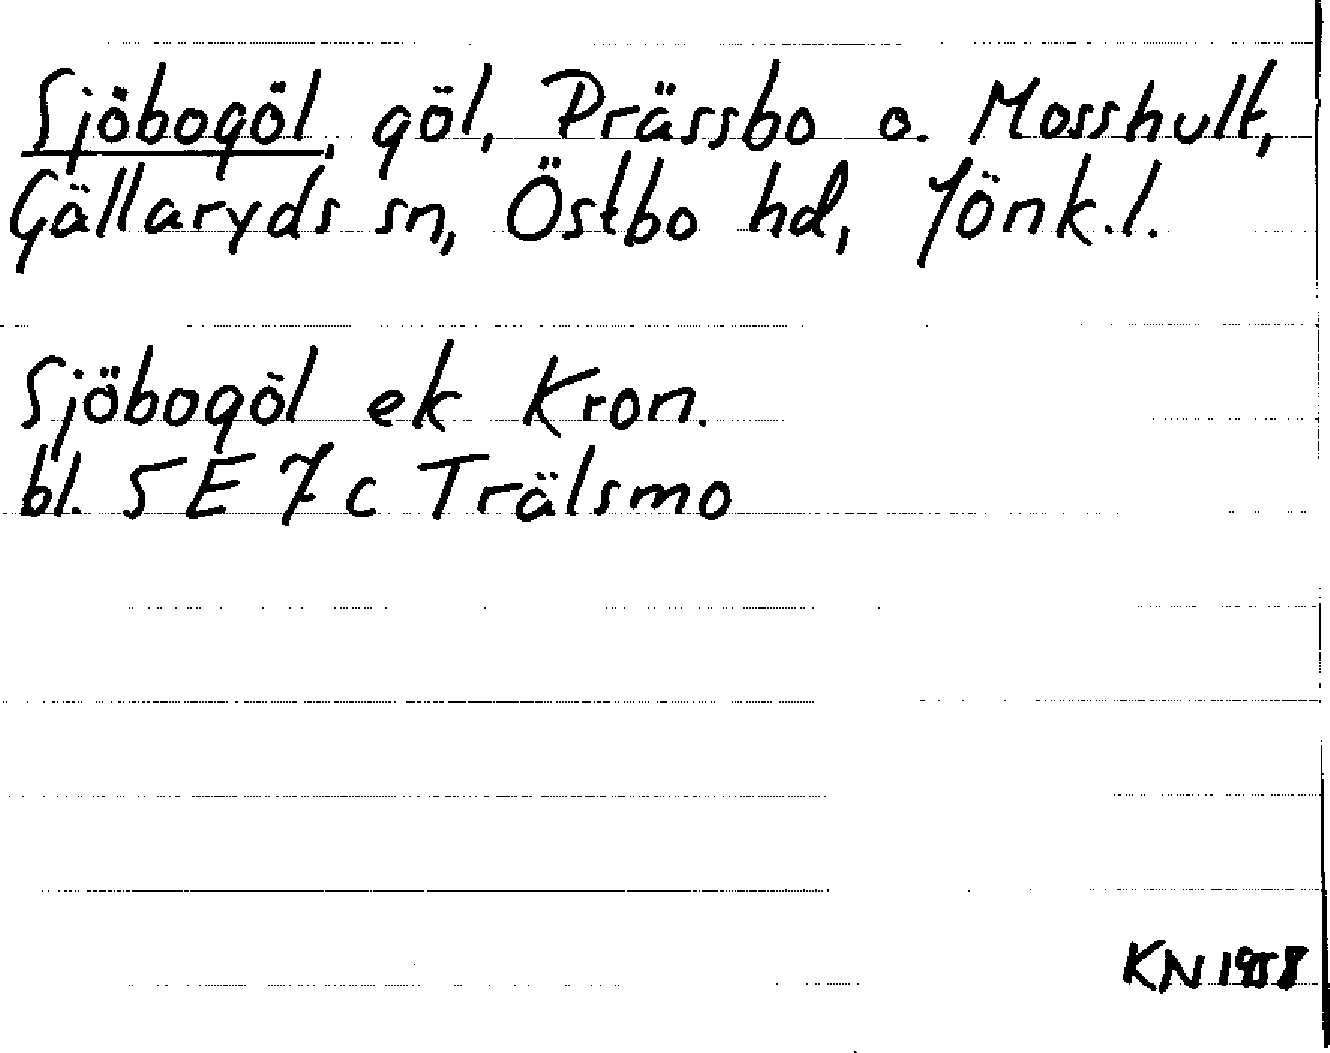 Sjöbogöl, göl, Prässbo o. Mosshult,
Gällaryds sn, Östbo hd, Jönk.l.
Sjöbogöl ek Kron.
bl. 5E 7c Trälsmo
KN 1958